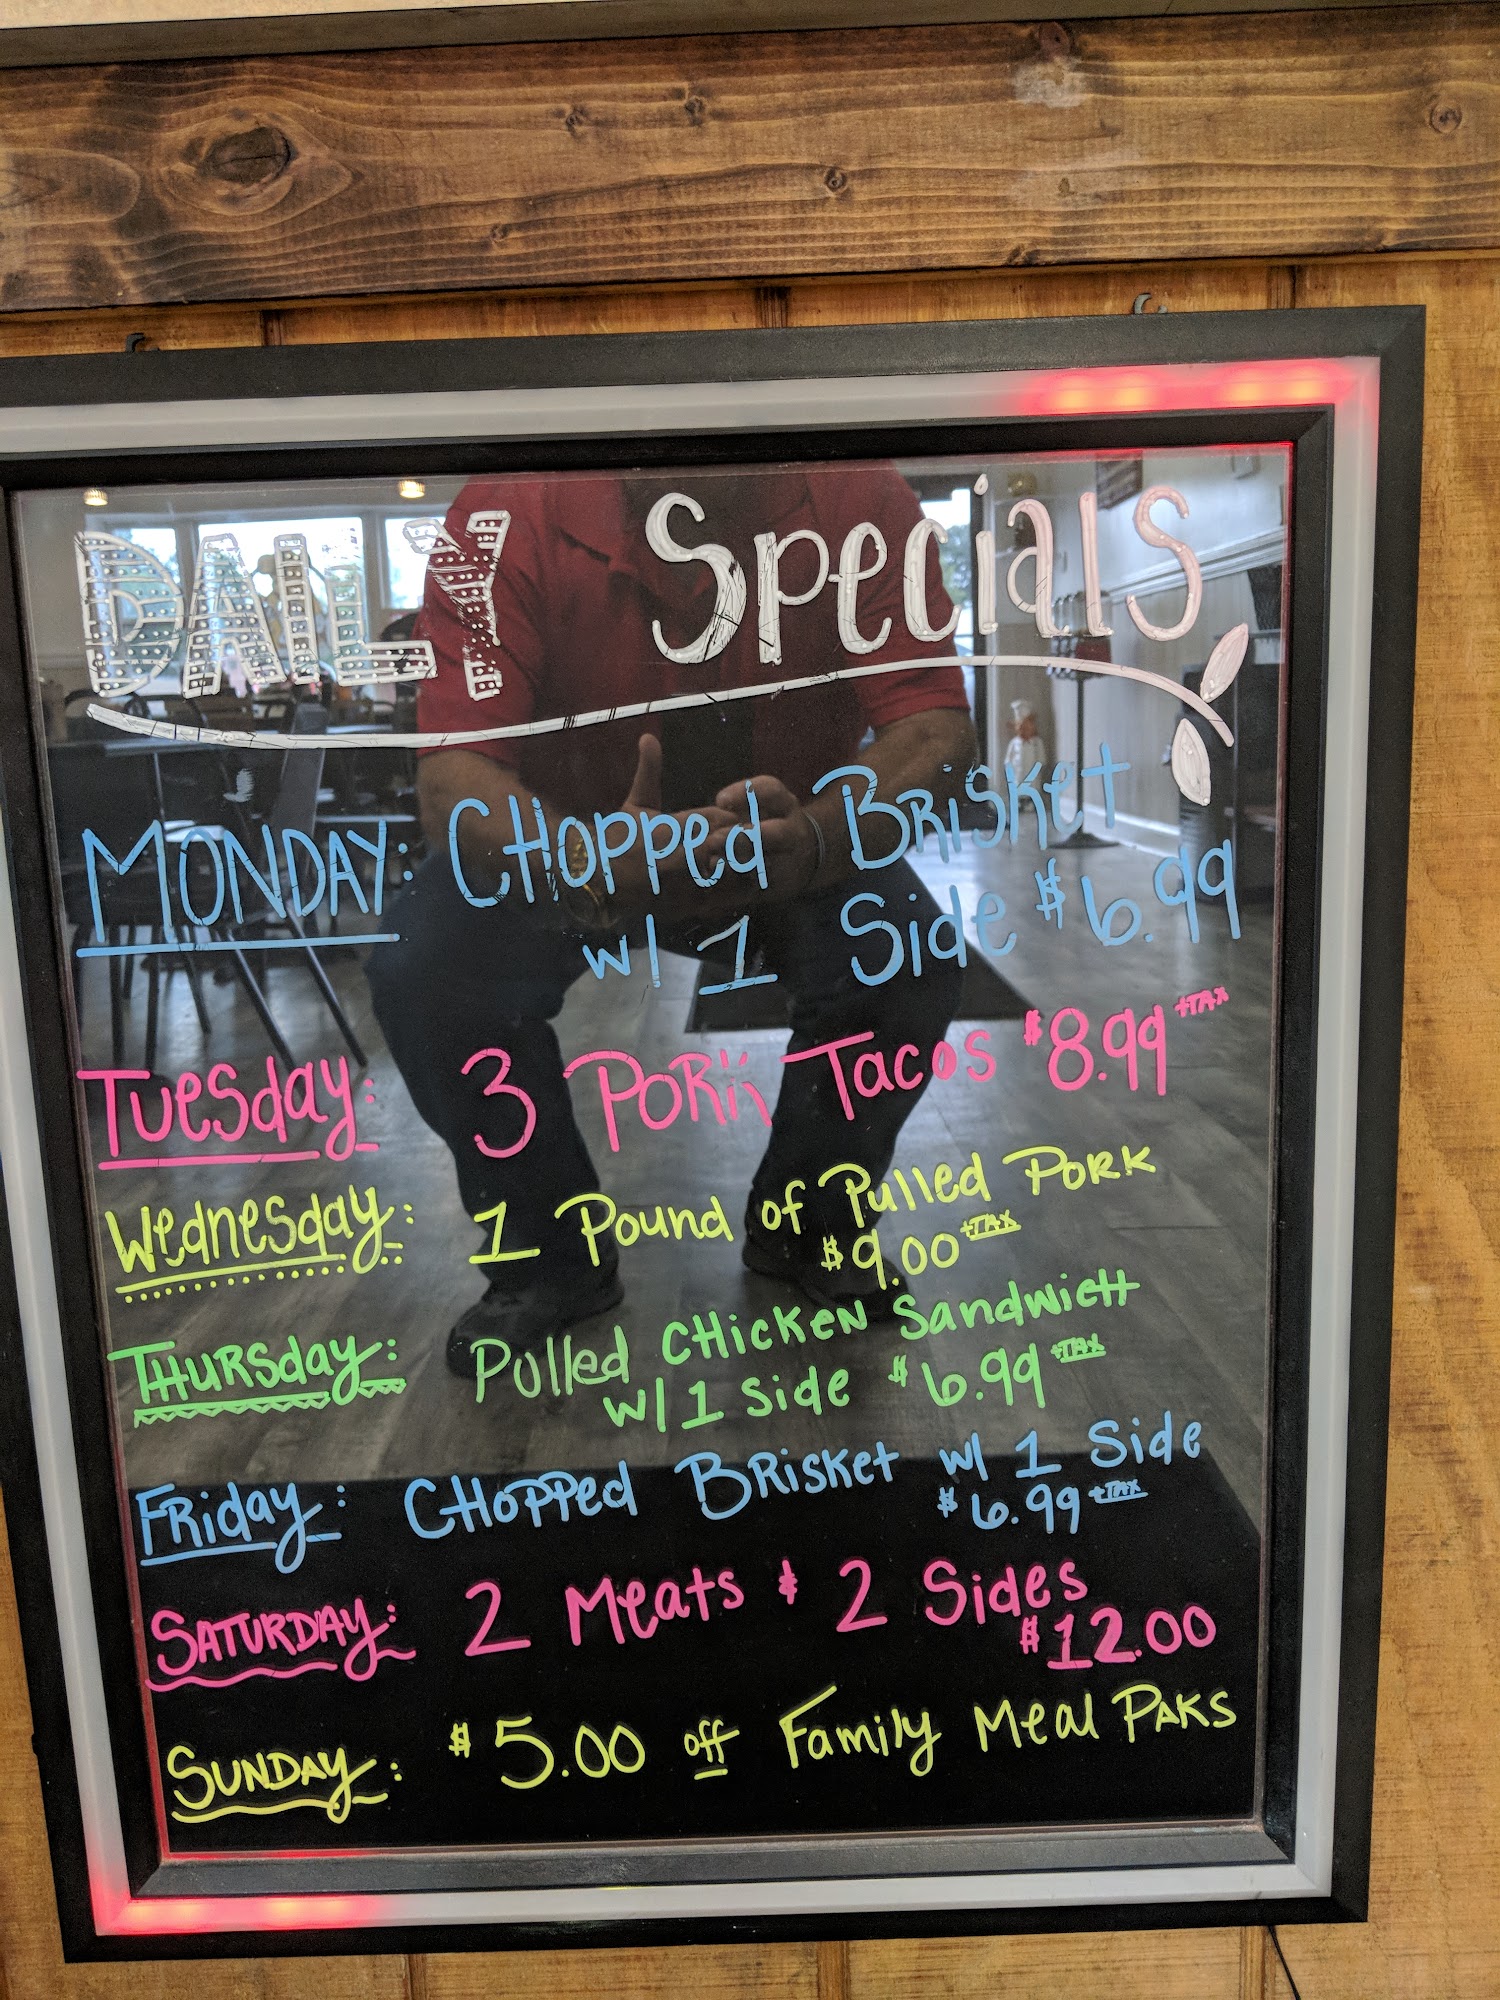 DAILY Specials
MONDAY: CHOPPed BRISKet
w/ 1 Side $6.99
Tuesday: 3 PORK Tacos $8.99 +TAX
Wednesday: 1 Pound of Pulled PORK
$9.00 +TAX
THURSday: Pulled CHicKEN Sandwich
w/ 1 side $6.99 +TAX
FRiday: CHoPPed BRISKet w/ 1 Side
$6.99 +TAX
SATURDAY: 2 Meats & 2 Sides
$12.00
SUNDAY: $5.00 off Family Meal PAKS